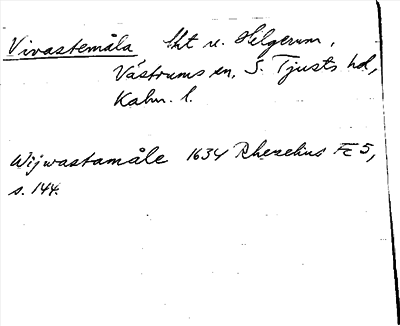 Vivastemåla tht u. Helgerum,
Västrums sn, S. Tjusts hd,
Kalm. l.
Wijwastamåle 1634 Rhezelius Fc 5,
s. 144.